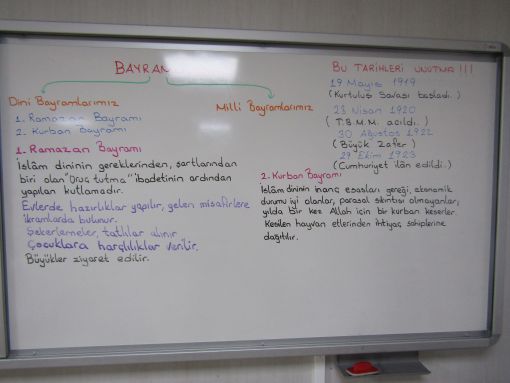 BAYRAM
Dini Bayramlarımız
1. Ramazan Bayramı
2. Kurban Bayramı
1. Ramazan Bayramı
İslâm dininin gereklerinden, şartlarından
biri olan "Oruç tutma" ibadetinin ardından
yapılan kutlamadır.
Evlerde hazırlıklar yapılır, gelen misafirlere
ikramlarda bulunur.
Şekerlemeler, tatlılar alınır
Çocuklara harçlılıklar verilir.
Büyükler ziyaret edilir.
Milli Bayramlarımız
BU TARİHLERİ UNUTMA !!!
19 Mayıs 1919
(Kurtuluş Savaşı başladı.)
23 Nisan 1920
(T.B.M.M. açıldı.)
30 Ağustos 1922
(Büyük Zafer)
29 Ekim 1923
(Cumhuriyet ilân edildi.)
2. Kurban Bayramı
İslâm dininin inanç esasları gereği, ekonomik
durumu iyi olanlar, parasal sıkıntısı olmayanlar,
yılda bir kez Allah için bir kurban keserler.
Kesilen hayvan etlerinden ihtiyaç sahiplerine
dağıtılır.